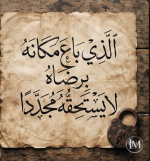 الَّذِي بَاعَ مَكَانَهُ
بِرِضَاهُ
لَا يَسْتَحِقُّهُ مُجَدَّدًا